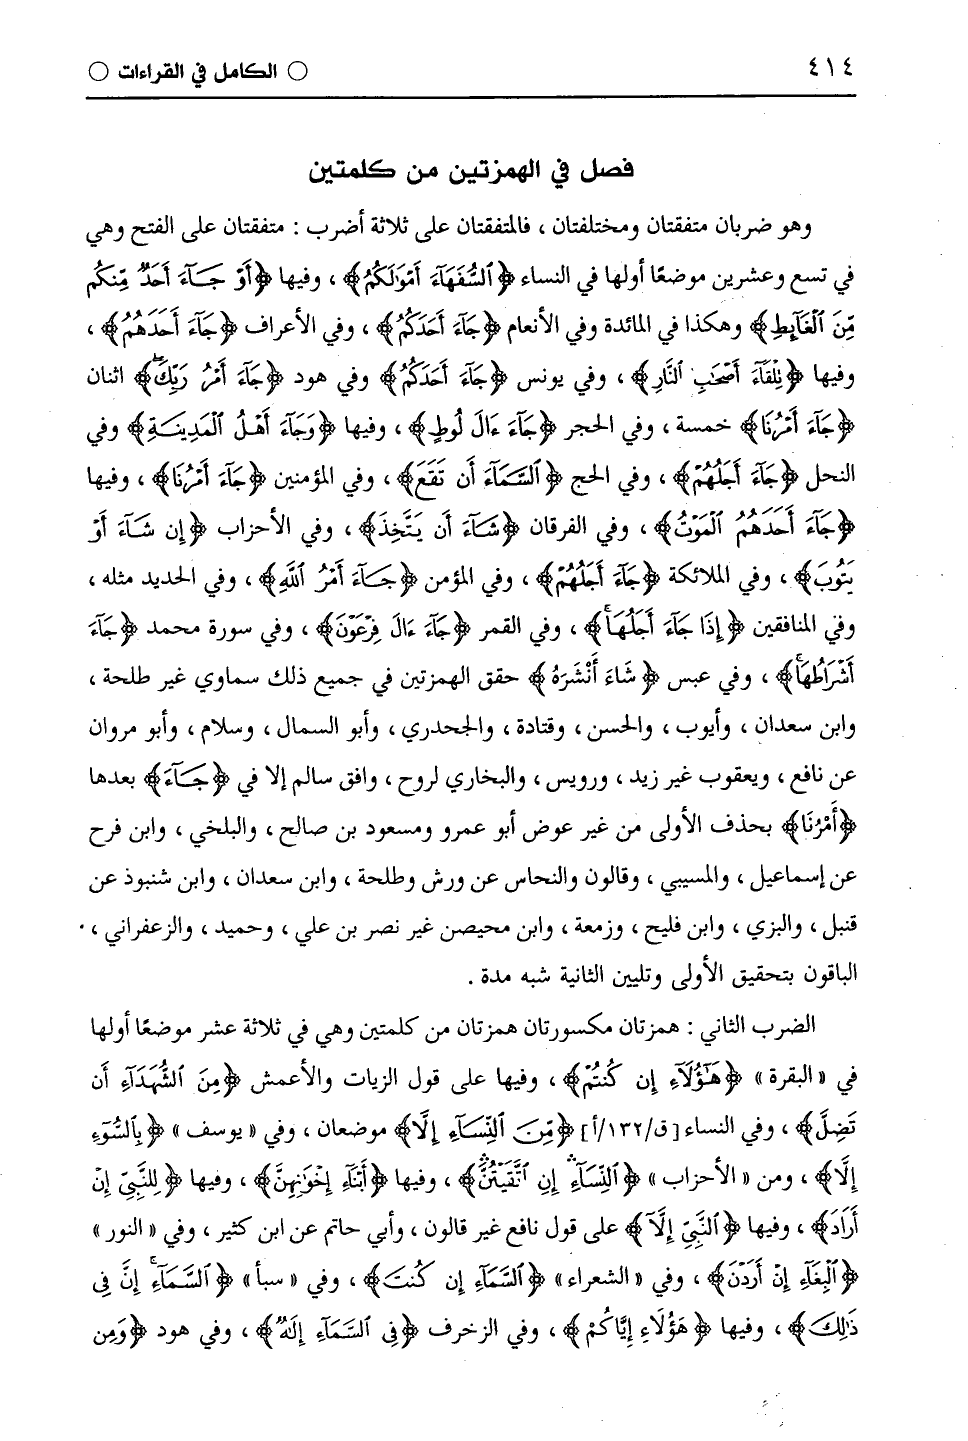 ٤١٤
○ الكامل في القراءات ○
فصل في الهمزتين من كلمتين
وهو ضربان متفقتان ومختلفتان ، فالمتفقتان على ثلاثة أضرب : متفقتان على الفتح وهي
في تسع وعشرين موضعًا أولها في النساء ﴿ٱلسُّفَهَآءَ أَمْوَٰلَكُمُ﴾ ، وفيها ﴿أَوْ جَآءَ أَحَدٌ مِّنكُم
مِّنَ ٱلْغَآئِطِ﴾ وهكذا في المائدة وفي الأنعام ﴿جَآءَ أَحَدَكُمُ﴾ ، وفي الأعراف ﴿جَآءَ أَحَدَهُمُ﴾ ،
وفيها ﴿تِلْقَآءَ أَصْحَٰبِ ٱلنَّارِ﴾ ، وفي يونس ﴿جَآءَ أَحَدَكُمُ﴾ وفي هود ﴿جَآءَ أَمْرُ رَبِّكَ﴾ اثنان
﴿جَآءَ أَمْرُنَا﴾ خمسة ، وفي الحجر ﴿جَآءَ ءَالَ لُوطٍ﴾ ، وفيها ﴿وَجَآءَ أَهْلُ ٱلْمَدِينَةِ﴾ وفي
النحل ﴿جَآءَ أَجَلُهُمْ﴾ ، وفي الحج ﴿ٱلسَّمَآءَ أَن تَقَعَ﴾ ، وفي المؤمنين ﴿جَآءَ أَمْرُنَا﴾ ، وفيها
﴿جَآءَ أَحَدَهُمُ ٱلْمَوْتُ﴾ ، وفي الفرقان ﴿شَآءَ أَن يَتَّخِذَ﴾ ، وفي الأحزاب ﴿إِن شَآءَ أَوْ
يَتُوبَ﴾ ، وفي الملائكة ﴿جَآءَ أَجَلُهُمْ﴾ ، وفي المؤمن ﴿جَآءَ أَمْرُ ٱللَّهِ﴾ ، وفي الحديد مثله ،
وفي المنافقين ﴿إِذَا جَآءَ أَجَلُهَا﴾ ، وفي القمر ﴿جَآءَ ءَالَ فِرْعَوْنَ﴾ ، وفي سورة محمد ﴿جَآءَ
أَشْرَاطُهَا﴾ ، وفي عبس ﴿شَاءَ أَنْشَرَهُ﴾ حقق الهمزتين في جميع ذلك سماوي غير طلحة ،
وابن سعدان ، وأيوب ، والحسن ، وقتادة ، والجحدري ، وأبو السمال ، وسلام ، وأبو مروان
عن نافع ، ويعقوب غير زيد ، ورويس ، والبخاري لروح ، وافق سالم إلا في ﴿جَآءَ﴾ بعدها
﴿أَمْرُنَا﴾ بحذف الأولى من غير عوض أبو عمرو ومسعود بن صالح ، والبلخي ، وابن فرح
عن إسماعيل ، والمسيبي ، وقالون والنحاس عن ورش وطلحة ، وابن سعدان ، وابن شنبوذ عن
قنبل ، والبزي ، وابن فليح ، وزمعة ، وابن محيصن غير نصر بن علي ، وحميد ، والزعفراني ،
الباقون بتحقيق الأولى وتليين الثانية شبه مدة .
الضرب الثاني : همزتان مكسورتان همزتان من كلمتين وهي في ثلاثة عشر موضعًا أولها
في « البقرة » ﴿هَٰٓؤُلَآءِ إِن كُنتُمْ﴾ ، وفيها على قول الزيات والأعمش ﴿مِنَ ٱلشُّهَدَآءِ أَن
تَضِلَّ﴾ ، وفي النساء [ق/١٣٢/أ] ﴿مِّنَ ٱلنِّسَآءِ إِلَّا﴾ موضعان ، وفي « يوسف » ﴿بِٱلسُّوٓءِ
إِلَّا﴾ ، ومن « الأحزاب » ﴿ٱلنِّسَآءِ إِنِ ٱتَّقَيْتُنَّ﴾ ، وفيها ﴿أَبْنَآءِ إِخْوَٰنِهِنَّ﴾ ، وفيها ﴿لِلنَّبِيِّ إِنْ
أَرَادَ﴾ ، وفيها ﴿ٱلنَّبِيِّ إِلَّآ﴾ على قول نافع غير قالون ، وأبي حاتم عن ابن كثير ، وفي « النور »
﴿ٱلْبِغَآءِ إِنْ أَرَدْنَ﴾ ، وفي « الشعراء » ﴿السَّمَآءِ إِن كُنتَ﴾ ، وفي « سبأ » ﴿ٱلسَّمَآءِ إِنَّ فِى
ذَٰلِكَ﴾ ، وفيها ﴿هَؤُلَاءِ إِيَّاكُمْ﴾ ، وفي الزخرف ﴿فِى ٱلسَّمَآءِ إِلَٰهٌ﴾ ، وفي هود ﴿وَمِن